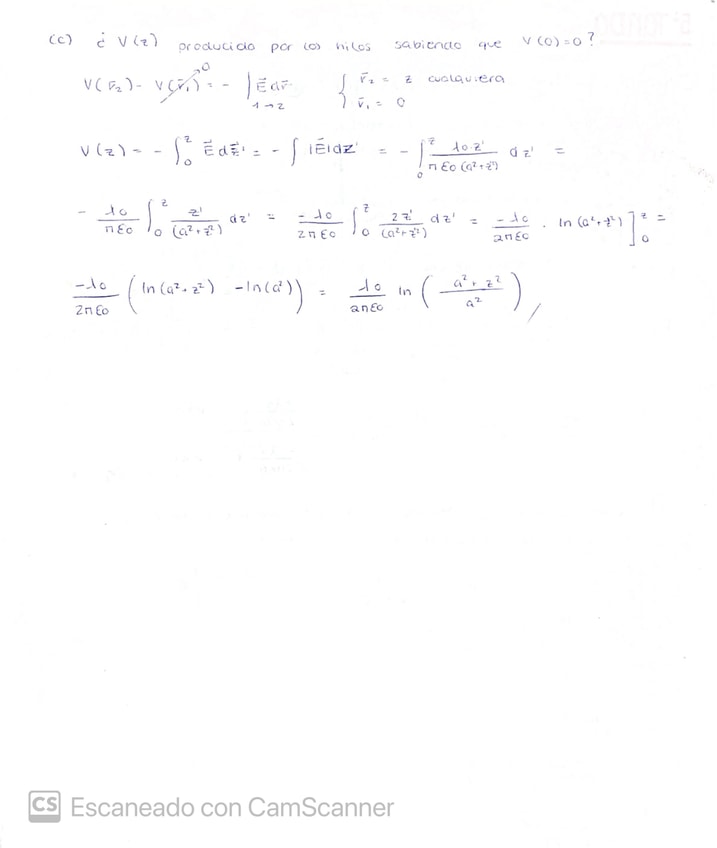 (c) ¿ V(z) producido por los hilos sabiendo que V(0)=0?
V(r̄₂) - V(r̄₁)→0 = - ∫₁→₂ E⃗ dr̄ { r̄₂ = z cualquiera
r̄₁ = 0
V(z) = - ∫₀ᶻ E⃗ dz⃗' = - ∫ |E⃗| dz' = - ∫₀ᶻ λ₀z' / πε₀(a²+z'²) dz' =
- λ₀/πε₀ ∫₀ᶻ z'/(a²+z'²) dz' = -λ₀/2πε₀ ∫₀ᶻ 2z'/(a²+z'²) dz' = -λ₀/2πε₀ · ln(a²+z²)]₀ᶻ =
-λ₀/2πε₀ (ln(a²+z²) - ln(a²)) = λ₀/2πε₀ ln((a²+z²)/a²)
CS Escaneado con CamScanner